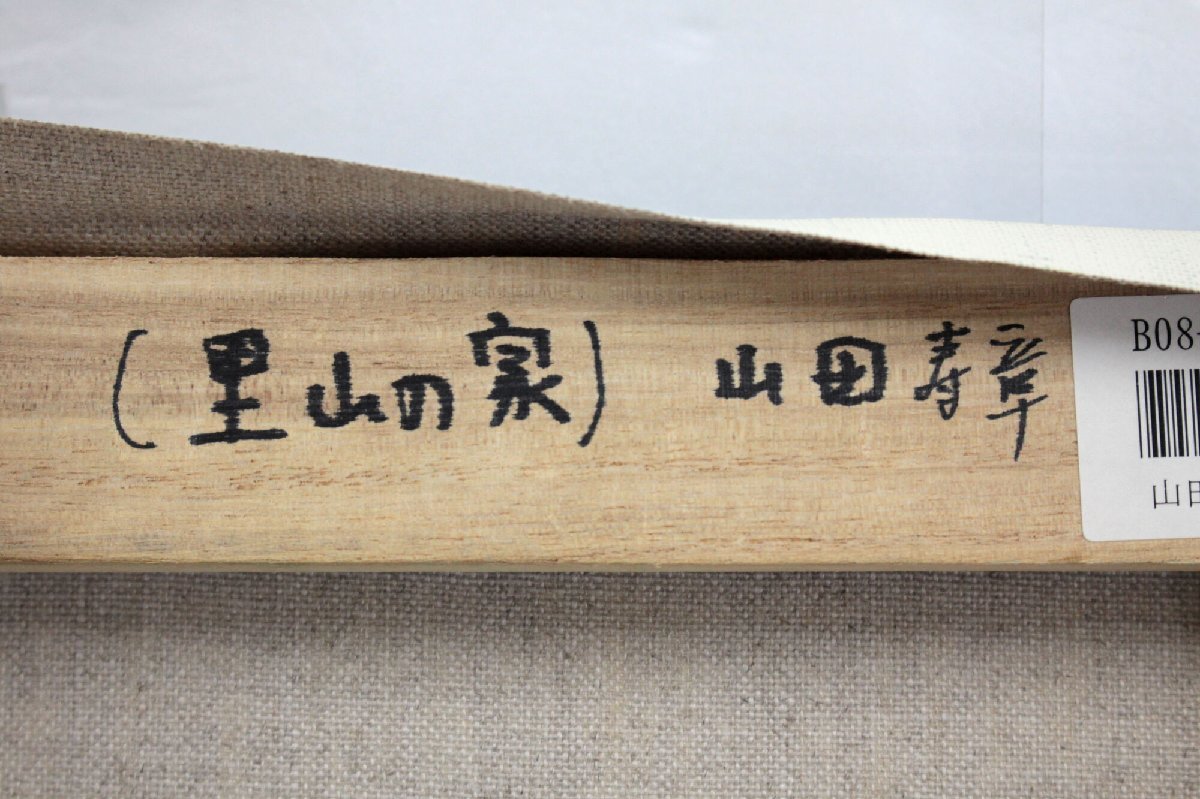 (里山の家) 山田寿章
B08
山田